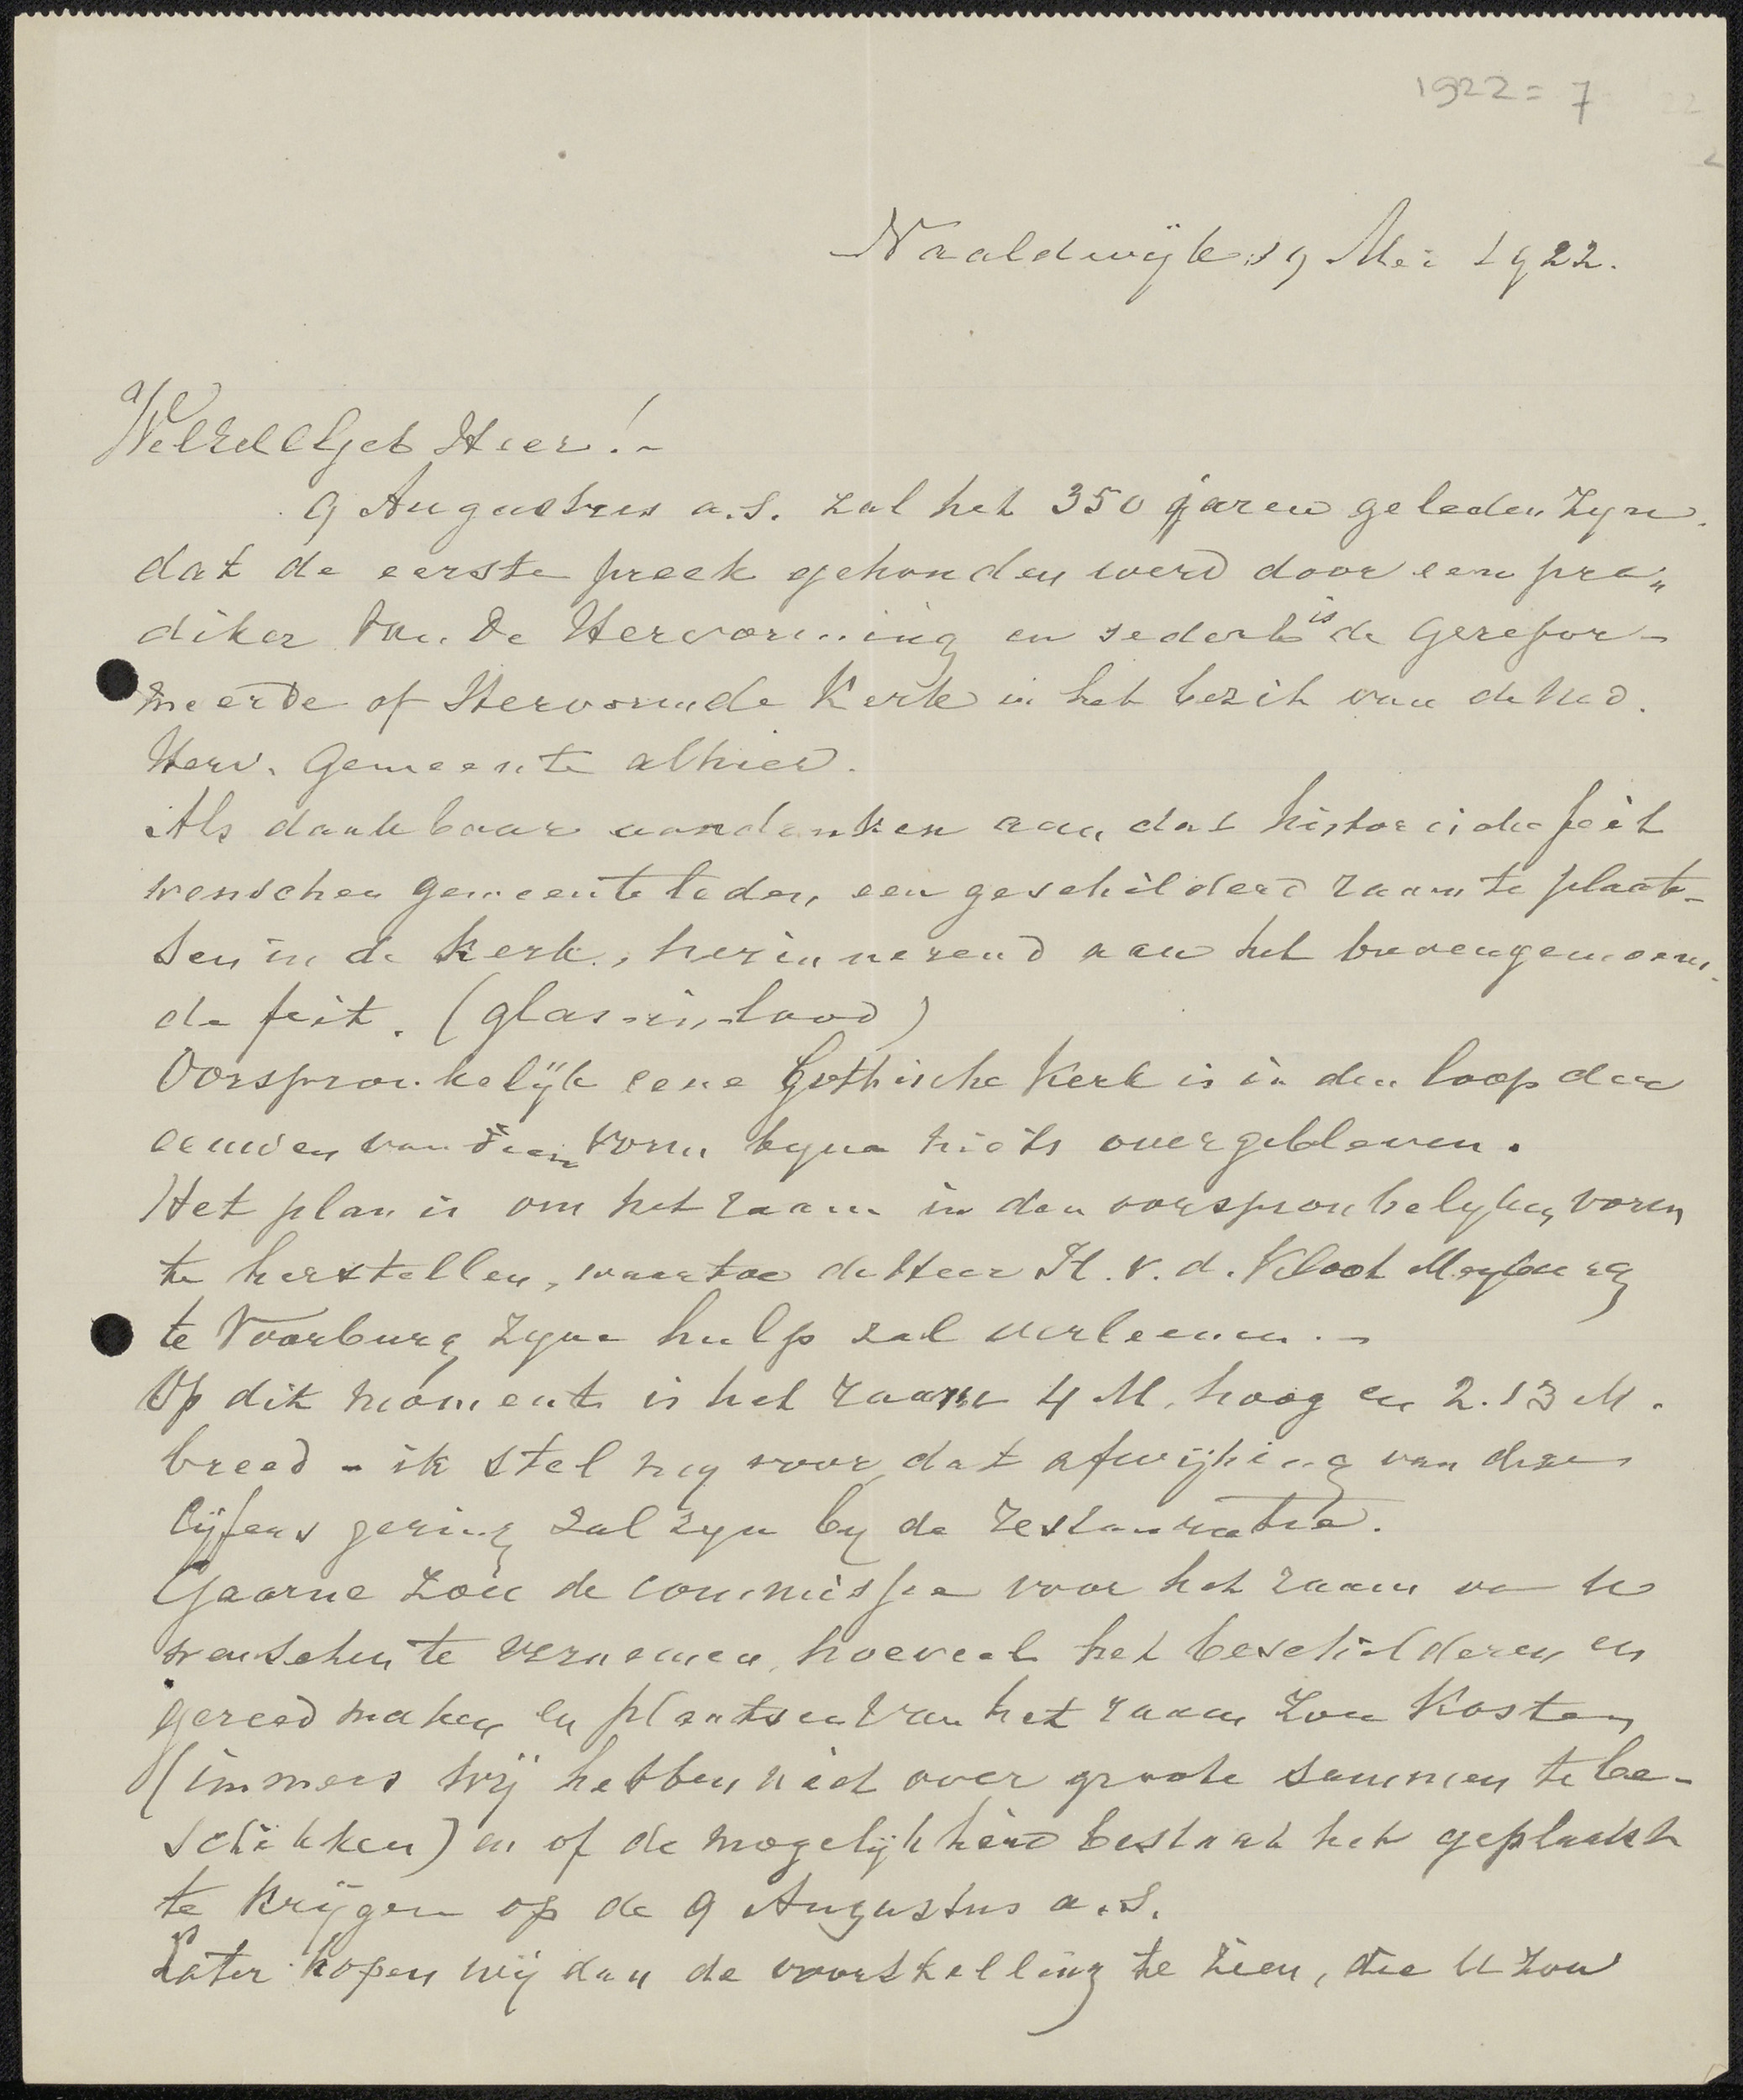 1922 = 7
Naaldwijk 19 Mei 1922.
WelEdelGeb Heer!-
9 Augustus a.s. zal het 350 jaren geleden zyn
dat de eerste preek gehouden werd door een pre„
diker van de Hervorming en sedert is de Gerefor-
meerde of Hervormde Kerk in het bezit van de Ned.
Herv. Gemeente alhier.
Als dankbaar aandenken aan dat historische feit
wenschen gemeenteleden, een geschilderd raam te plaat-
sen in de kerk, herinnerend aan het bovengenoem„
de feit. (glas-in-lood)
Oorspronkelijk eene Gothische Kerk is in den loop der
eeuwen van dien vorm byna niets overgebleven.
Het plan is om het raam in den oorspronkelyken vorm
te herstellen, waartoe de Heer H. v. d. Kloot Meyburg
te Voorburg zyne hulp zal verleenen. -
Op dit moment is het raam 4 M. hoog en 2.13 M.
breed - ik stel my voor, dat afwijking van deze
cijfers gering zal zyn by de restauratie.
Gaarne zou de commissie voor het raam van U
wenschen te vernemen, hoeveel het beschilderen en
gereed maken en plaatsen van het raam zou kosten
(immers wij hebben niet over groote sommen te be-
schikken) en of de mogelijkheid bestaat het geplaatst
te krijgen op de 9 Augustus a.s.
Later hopen wij dan de voorstelling te zien, die U zou